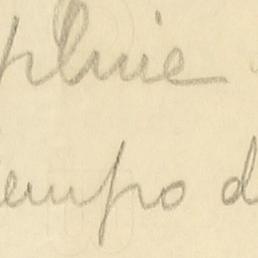 pluie
tempo d